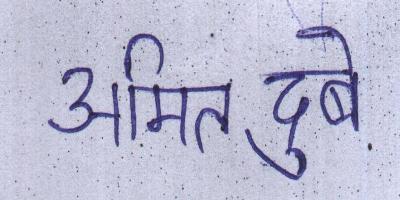 अमित दुबे